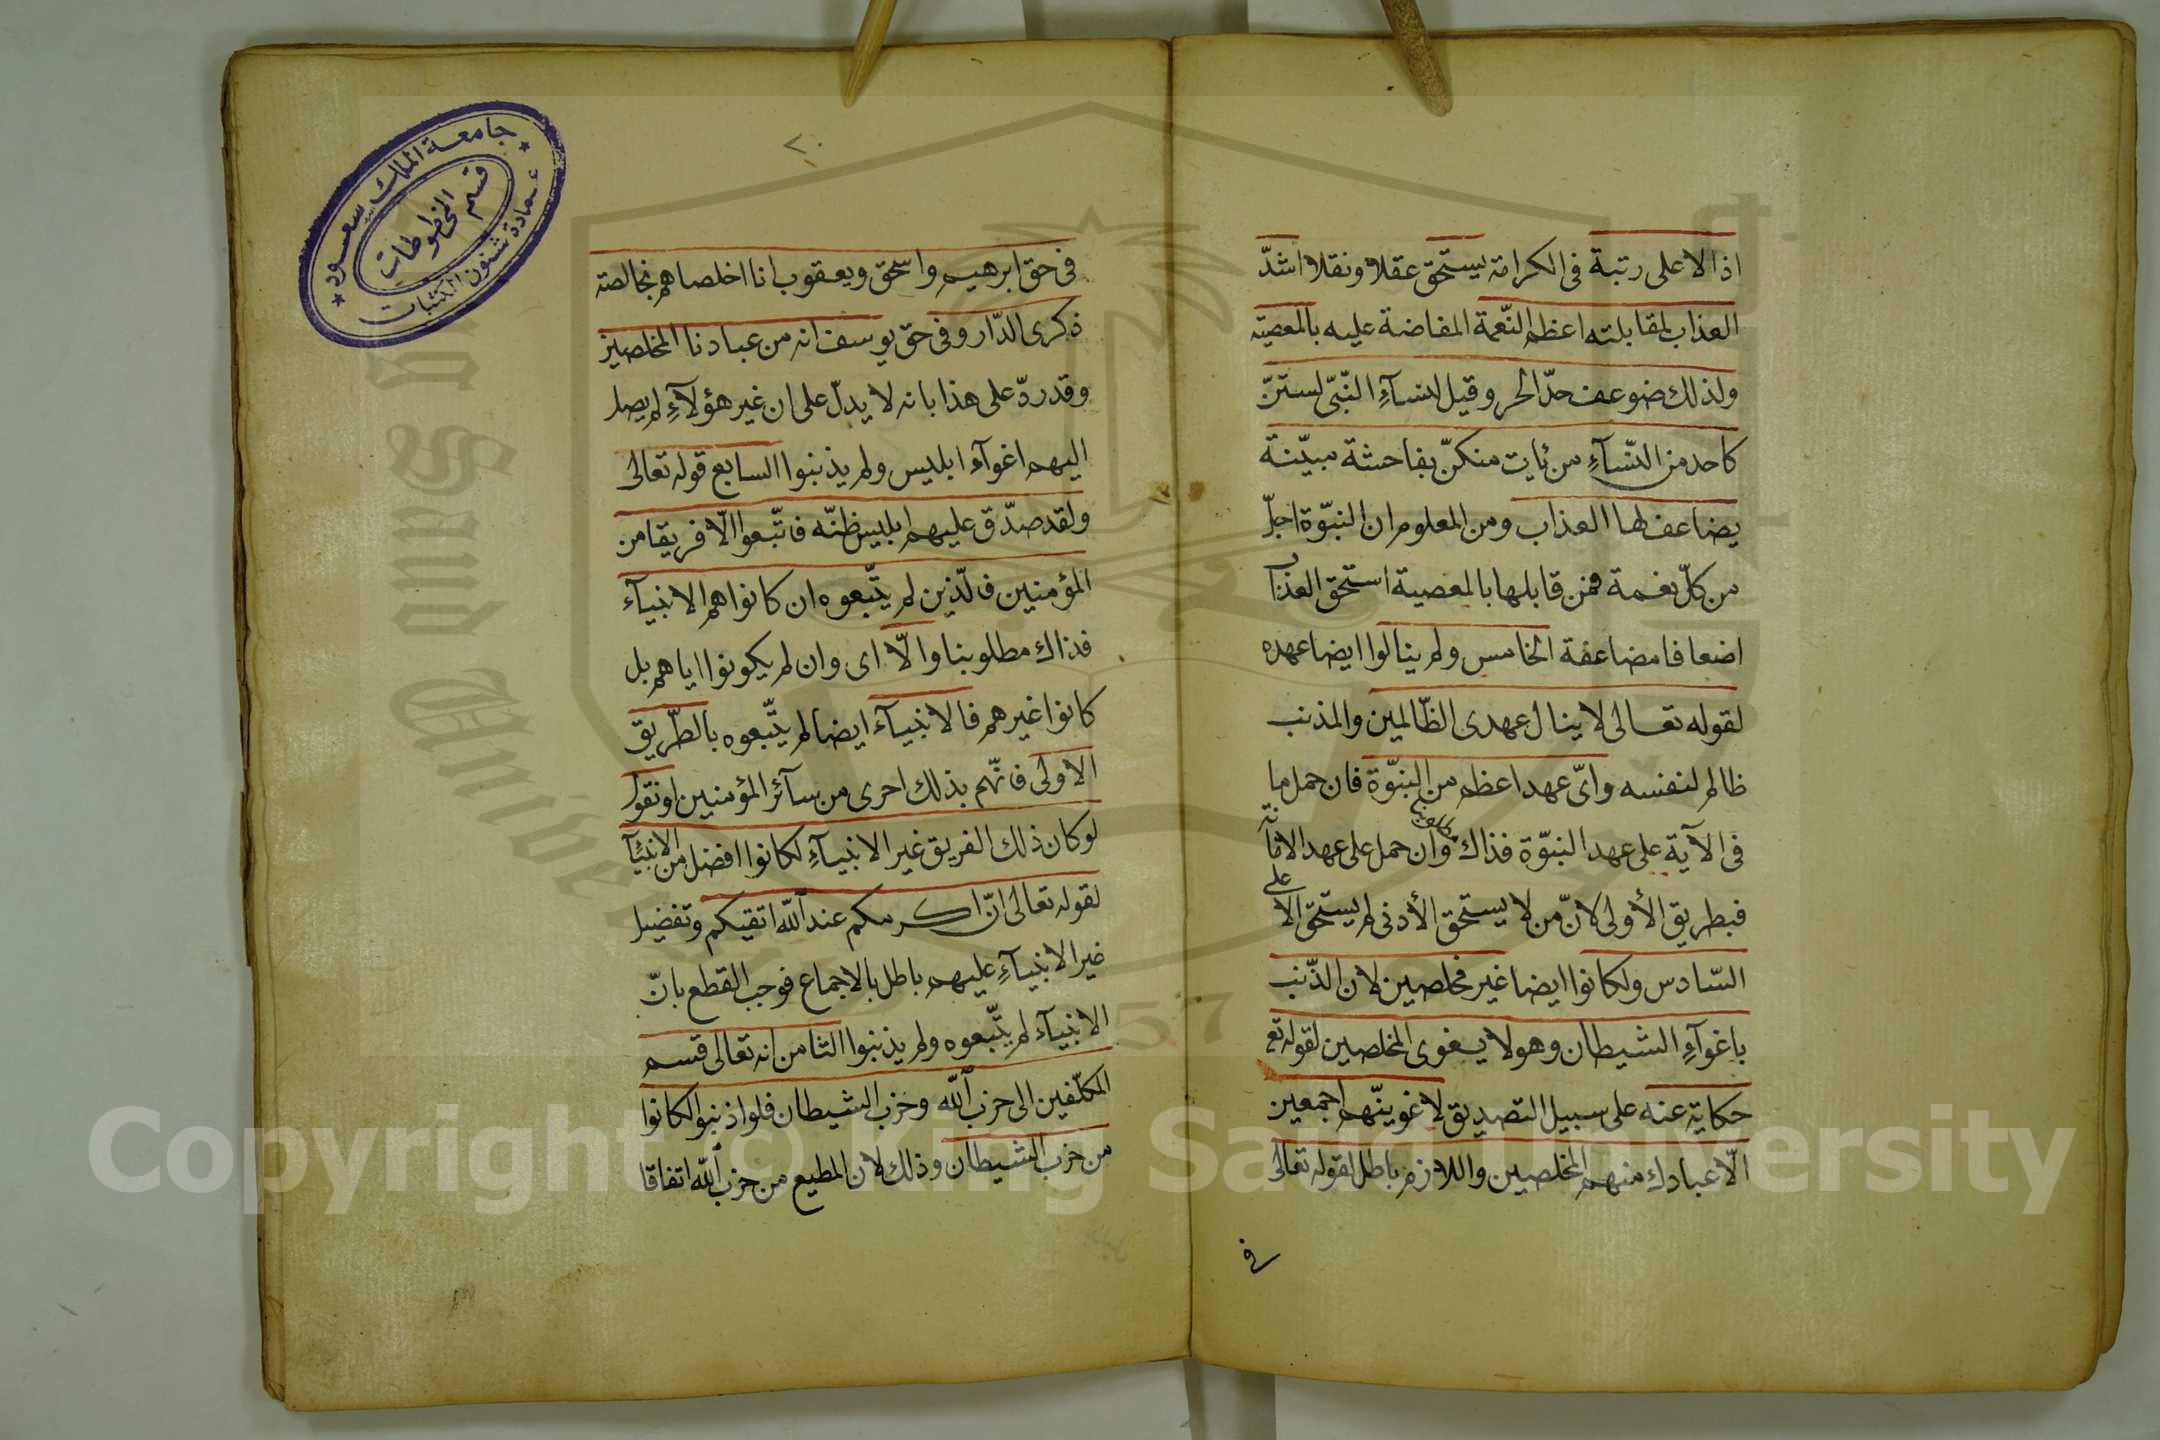 اذ الاعلى رتبة فى الكرامة يستحق عقلا ونقلا اشدّ
العذاب لمقابلته اعظم النّعمة المفاضة عليه بالمعصية
ولذلك ضوعف حدّ الحر وقيل لنسآءِ النّبىّ لستنّ
كاحد من النّسآءِ من يأت منكنّ بفاحشة مبيّنة
يضاعف لها العذاب ومن المعلوم ان النبوّة اجلّ
من كلّ نعمة فمن قابلها بالمعصية استحق العذاب
اضعافا مضاعفة الخامس ولم ينالوا ايضا عهده
لقوله تعالى لا ينال عهدى الظّالمين والمذنب
ظالم لنفسه واىّ عهد اعظم من النبوّة فان حمل ما
فى الآية على عهد النبوّة فذاك وان حمل على عهد الامامة
فبطريق الأولى لانّ من لا يستحق الأدنى لم يستحق الاعلى
السّادس ولكانوا ايضا غير مخلصين لان الذّنب
باغوآءِ الشيطان وهو لا يغوى المخلصين لقوله تع
حكاية عنه على سبيل التصديق لاغوينّهم اجمعين
الّا عبادك منهم المخلصين واللازم باطل لقوله تعالى
فى
٢٠
فى حق ابرهيم واسحق ويعقوب انا اخلصاهم بخالصة
ذكرى الدّار وفى حق يوسف انه من عبادنا المخلصين
وقد ردّ على هذا بانه لا يدلّ على ان غير هؤلآءِ لم يصل
اليهم اغوآء ابليس ولم يذنبوا السابع قوله تعالى
ولقد صدّق عليهم ابليس ظنّه فاتّبعوا الّا فريقا من
المؤمنين فالّذين لم يتّبعوه ان كانوا هم الانبيآء
فذاك مطلوبنا والّا اى وان لم يكونوا اياهم بل
كانوا غيرهم فالانبيآء ايضا لم يتّبعوه بالطّريق
الاولى فانّهم بذلك احرى من سآئر المؤمنين او نقول
لو كان ذلك الفريق غير الانبيآءِ لكانوا افضل من الانبيآء
لقوله تعالى انّ اكرمكم عند اللّه اتقيكم وتفضيل
غير الانبيآءِ عليهم باطل بالاجماع فوجب القطع بانّ
الانبيآء لم يتّبعوه ولم يذنبوا الثامن انه تعالى قسم
المكلّفين الى حزب اللّه وحزب الشيطان فلو اذنبوا لكانوا
من حزب الشيطان وذلك لان المطيع من حزب اللّه اتفاقا
جامعة الملك سعود
قسم المخطوطات
عمادة شئون المكتبات
Copyright © King Saud University